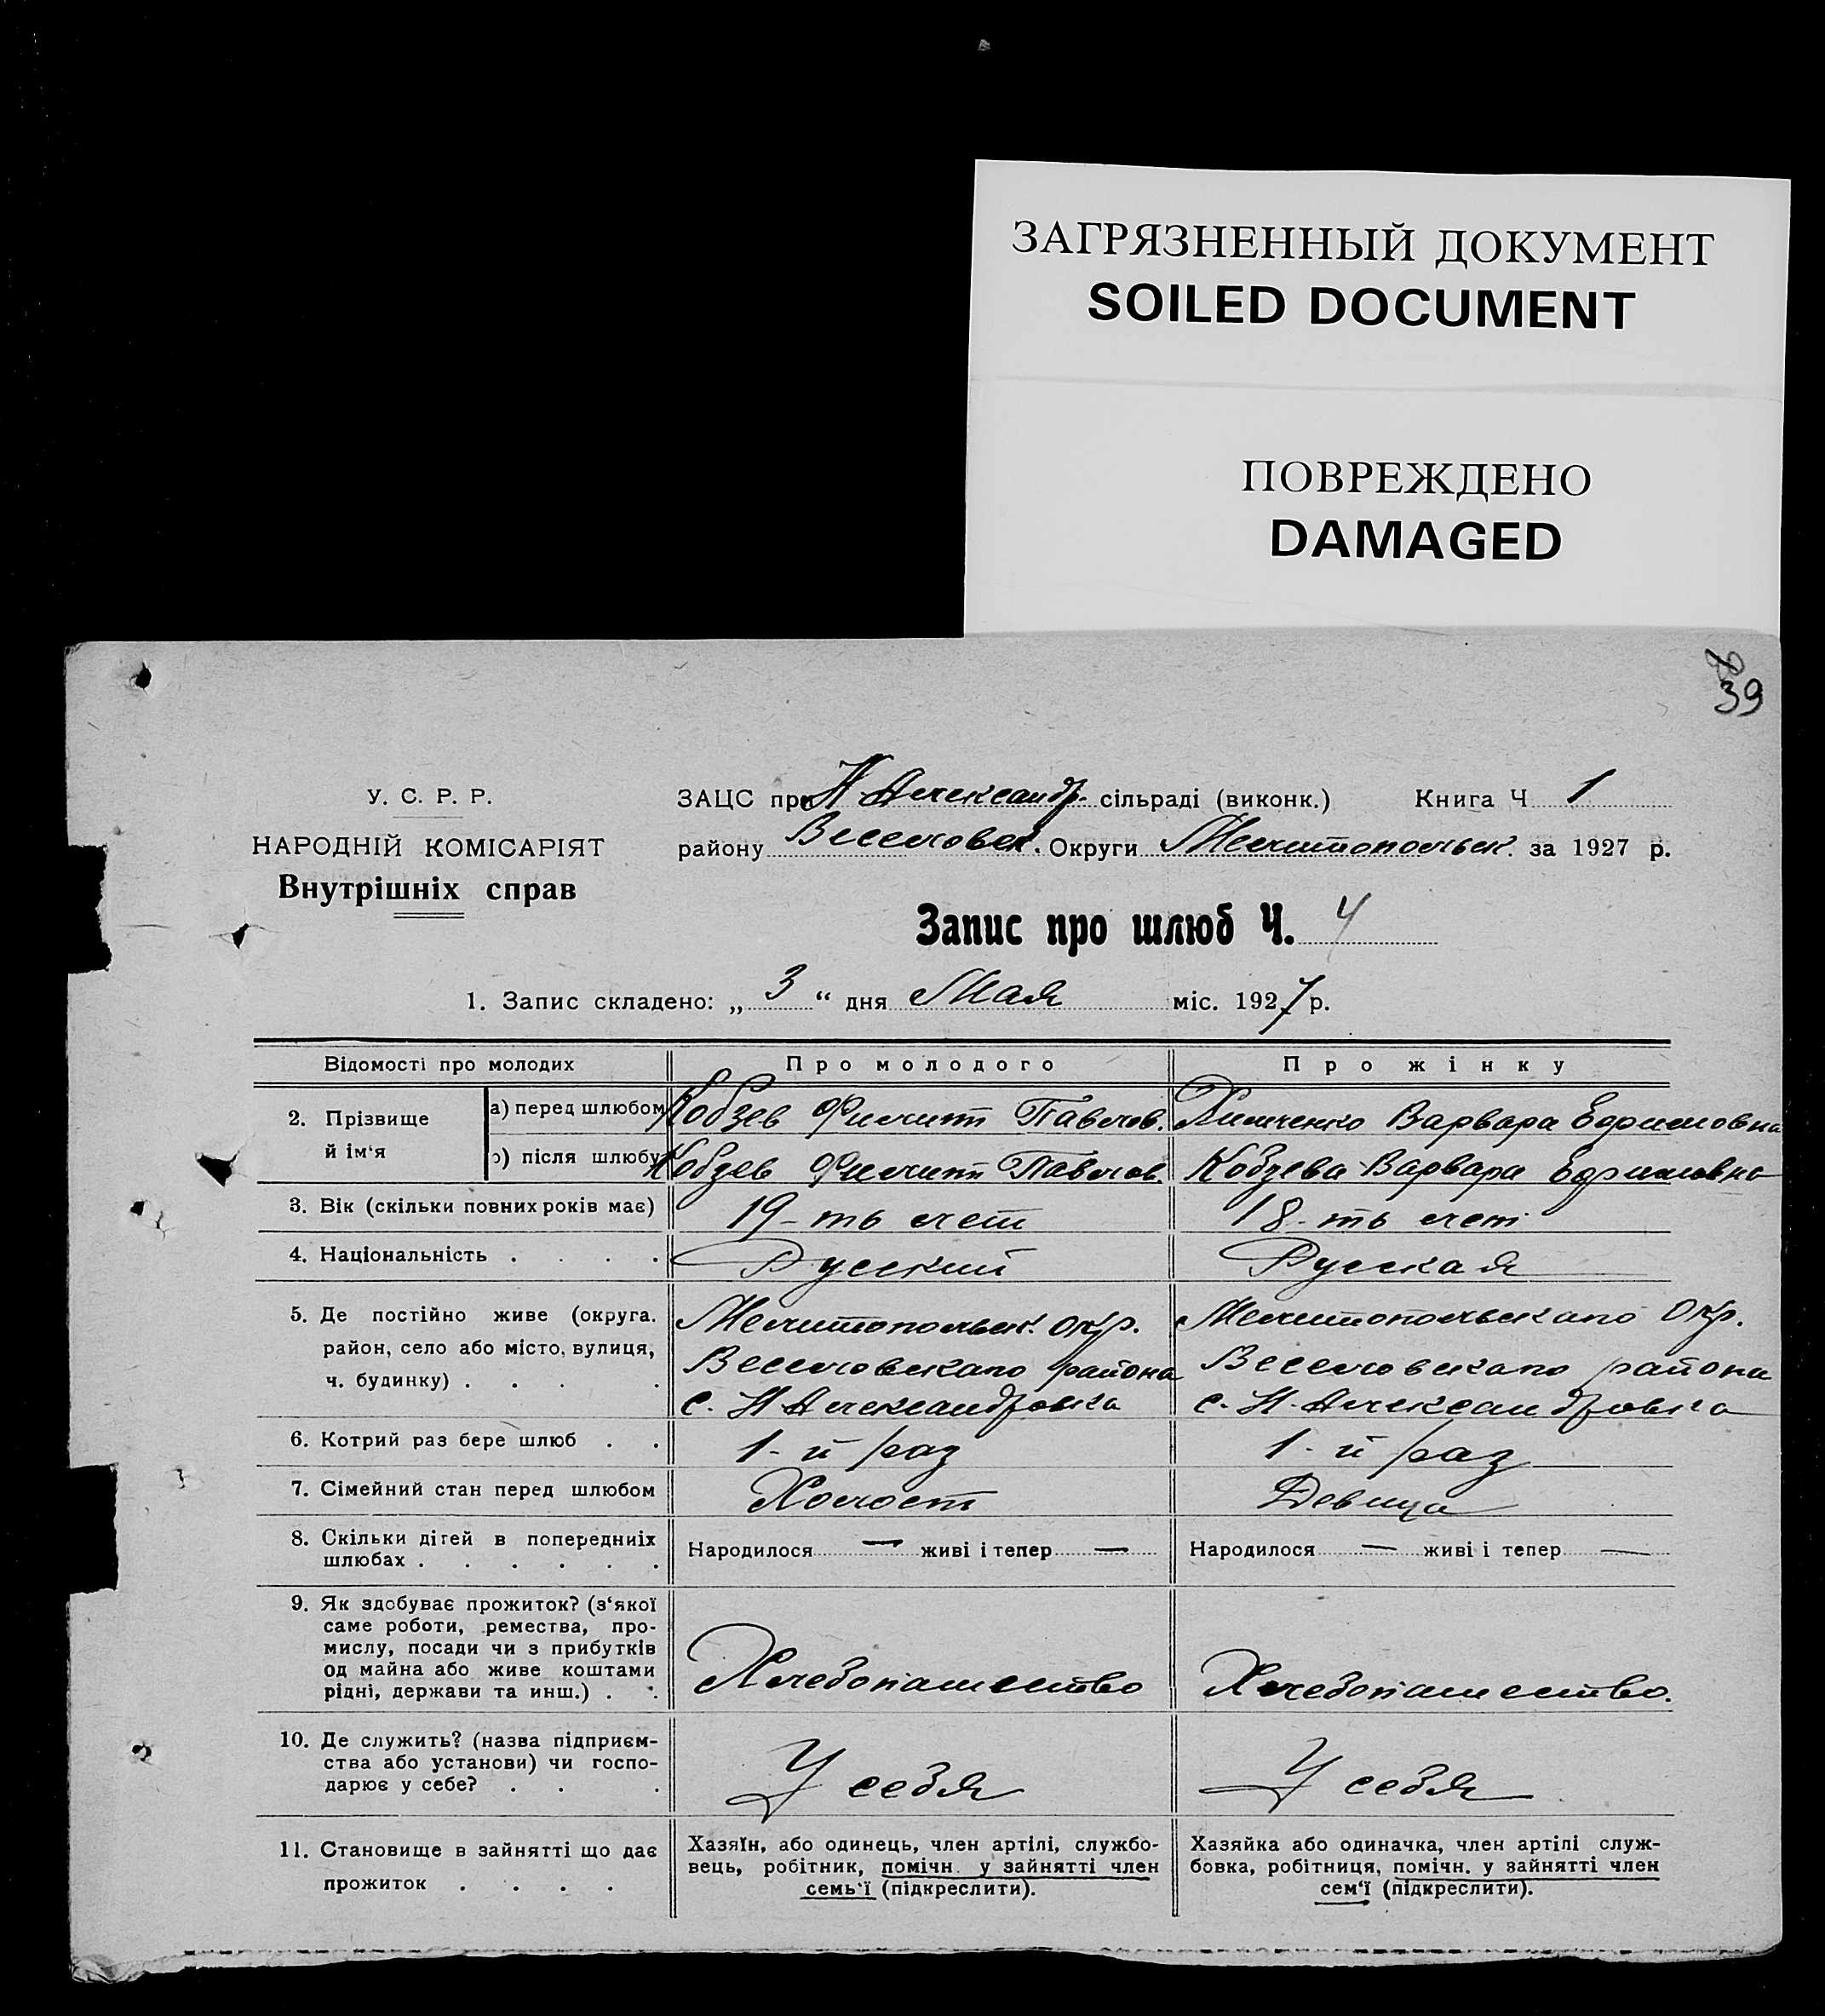 ЗАГРЯЗНЕННЫЙ ДОКУМЕНТ
SOILED DOCUMENT
ПОВРЕЖДЕНО
DAMAGED
39
У. С. Р. Р.
НАРОДНІЙ КОМІСАРІЯТ
Внутрішніх справ
ЗАЦС при Н Александр. сільраді (виконк.) Книга Ч 1
району Веселовск. Округи Мелитопольск. за 1927 р.
Запис про шлюб Ч. 4
1. Запис складено: „ 3 “ дня Мая міс. 1927 р.
Відомості про молодих Про молодого Про жінку
2. Прізвище й ім‘я а) перед шлюбом Кобзев Филипп Павлов. Химченко Варвара Ефимовна
б) після шлюбу Кобзев Филипп Павлов. Кобзева Варвара Ефимовна
3. Вік (скільки повних років має) 19-ть лет 18-ть лет
4. Національність . . . . Русский Русская
5. Де постійно живе (округа. Мелитопольск. окр. Мелитопольскаго Окр.
район, село або місто, вулиця, Веселовскаго района Веселовскаго района
ч. будинку) . . . . с. Н Александровка с. Н. Александровка
6. Котрий раз бере шлюб . . 1-й раз 1-й раз
7. Сімейний стан перед шлюбом Холост Девица
8. Скільки дітей в попередниіх
шлюбах . . . . . . Народилося — живі і тепер — Народилося — живі і тепер —
9. Як здобуває прожиток? (з‘якої
саме роботи, ремества, про-
мислу, посади чи з прибутків
од майна або живе коштами
рідні, держави та инш.) . . Хлебопашество Хлебопашество.
10. Де служить? (назва підприєм-
ства або установи) чи госпо-
дарює у себе? . . . У себя У себя
11. Становище в зайнятті що дає
прожиток . . . .
Хазяїн, або одинець, член артілі, службо-
вець, робітник, помічн. у зайнятті член
семь‘ї (підкреслити).
Хазяйка або одиначка, член артілі служ-
бовка, робітниця, помічн. у зайнятті член
сем‘ї (підкреслити).